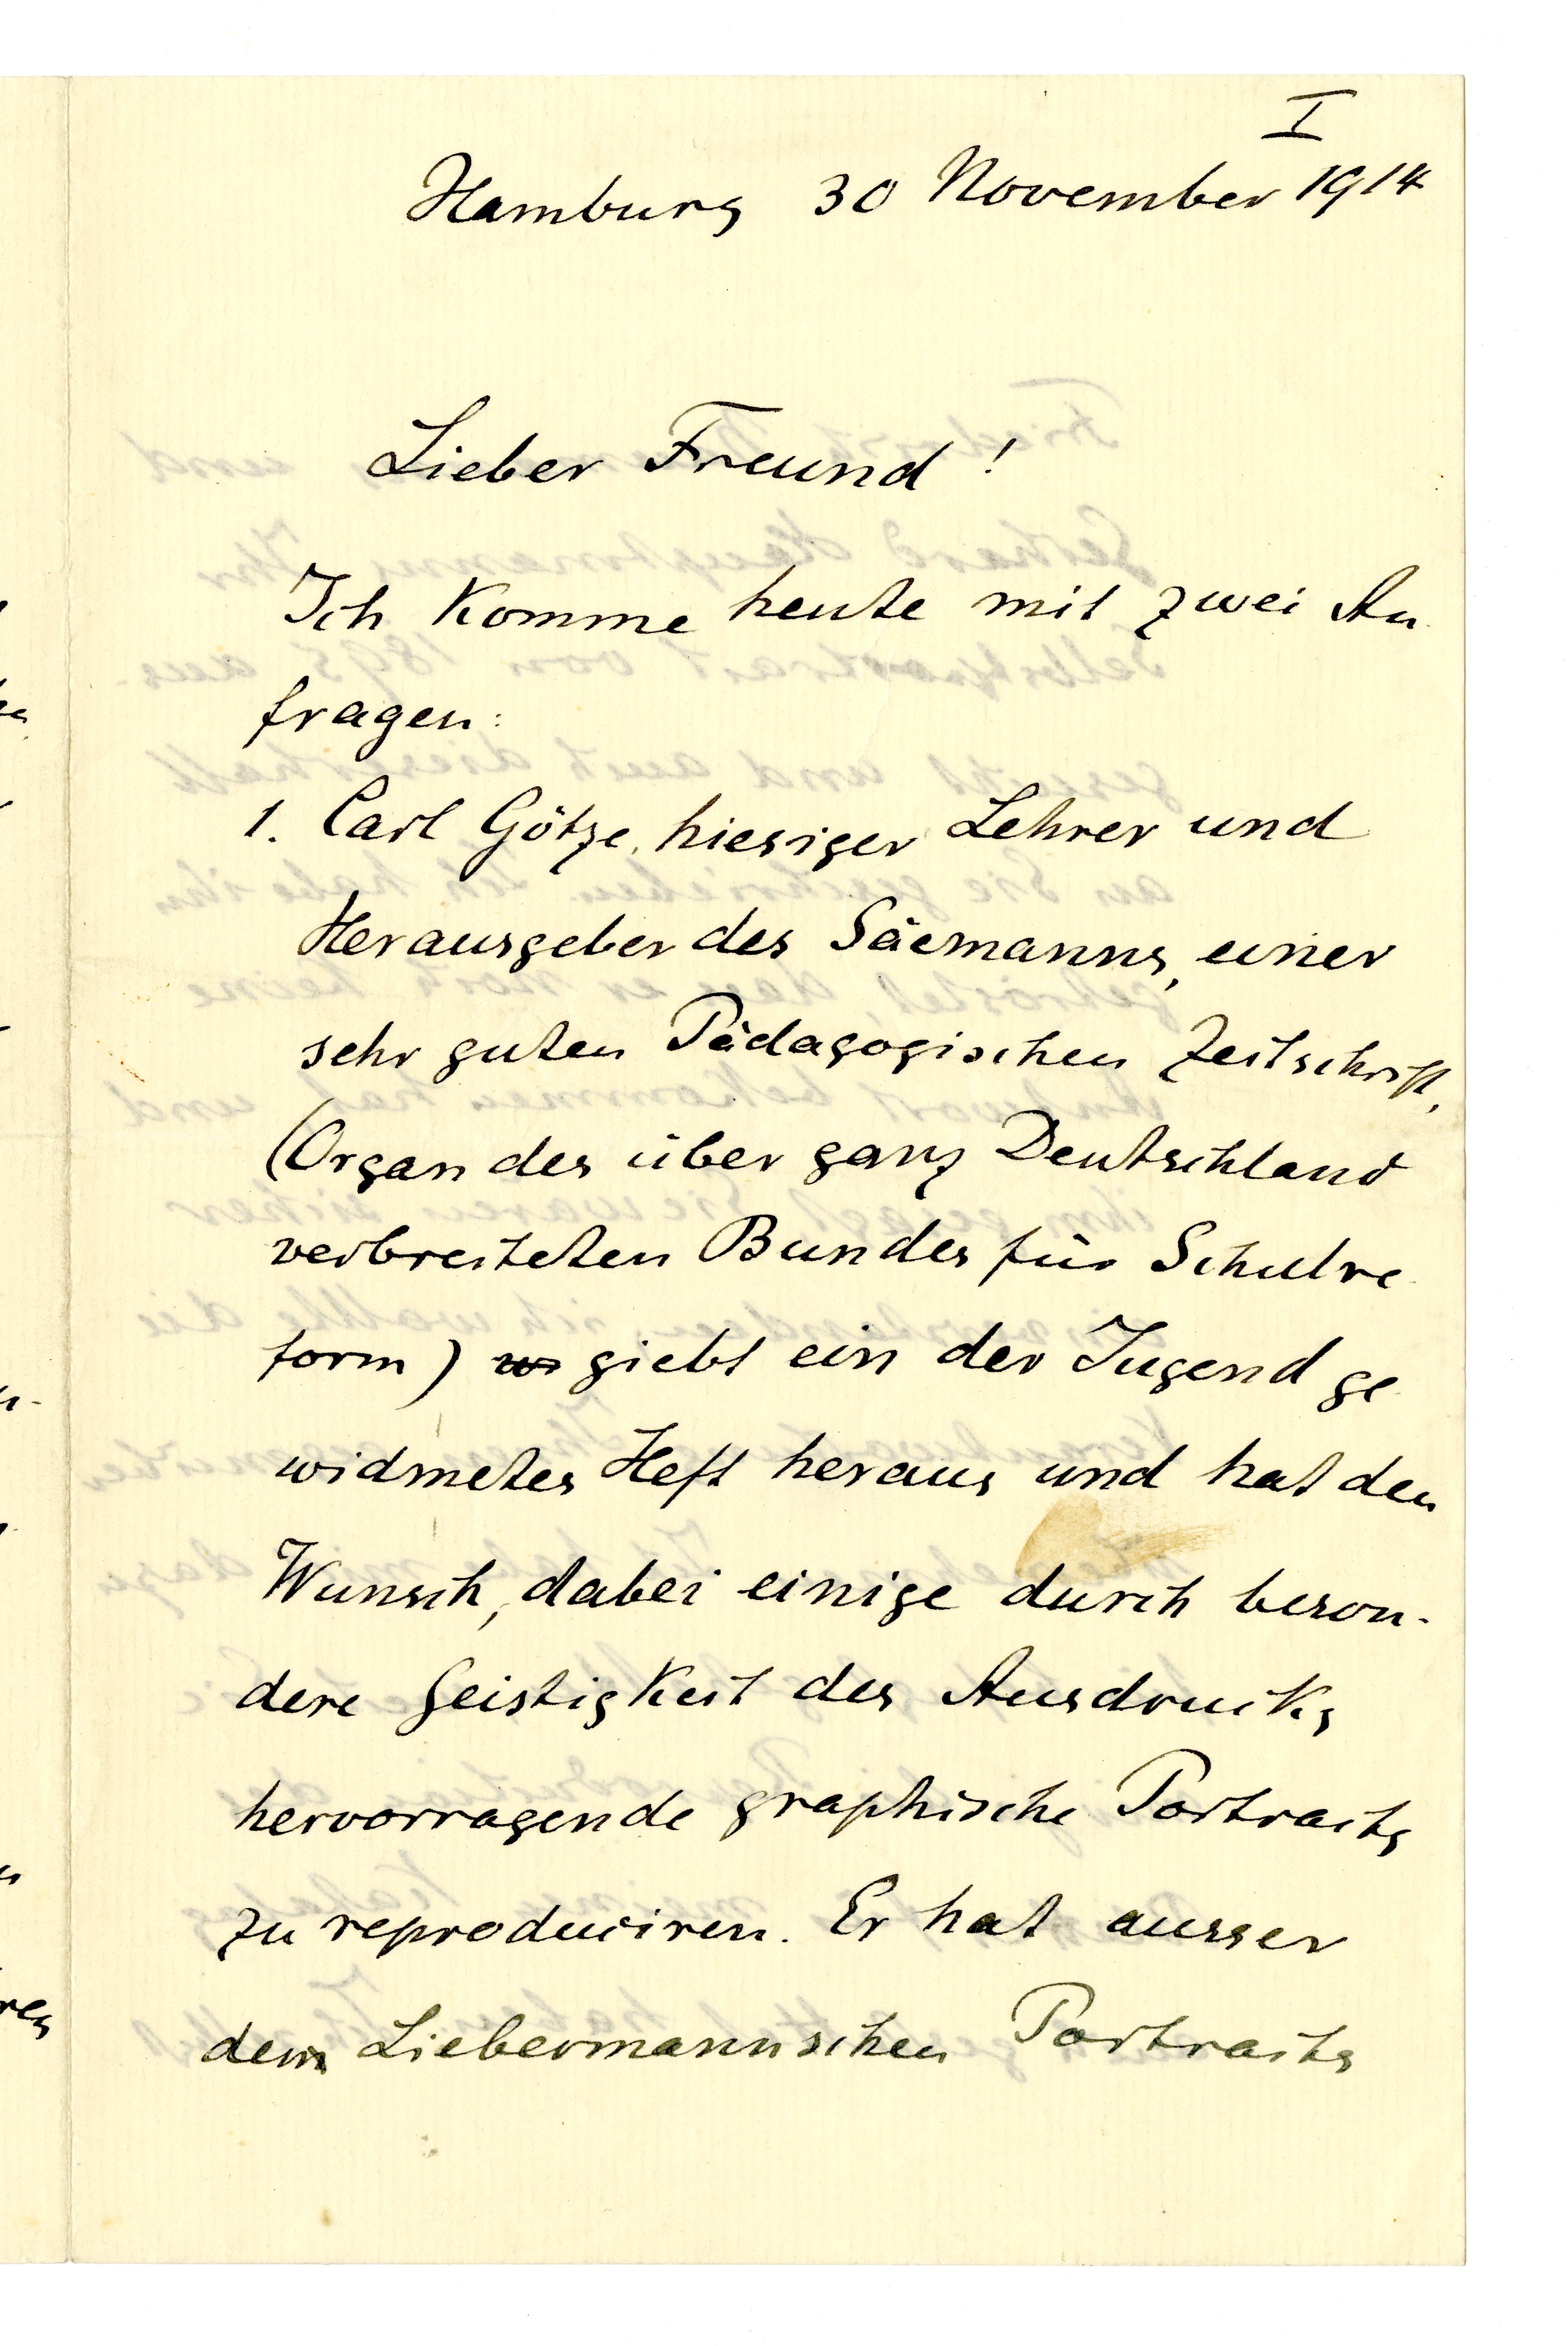 I
Hamburg 30 November 1914
Lieber Freund!
Ich komme heute mit zwei An
fragen:
1. Carl Götze, hiesiger Lehrer und
Herausgeber des Säemanns, einer
sehr guten Pädagogischen Zeitschrift,
(Organ des über ganz Deutschland
verbreiteten Bundes für Schulre
form) giebt ein der Jugend ge
widmetes Heft heraus und hat den
Wunsch, dabei einige durch beson-
dere Geistigkeit des Ausdrucks
hervorragende graphische Portraits
zu reproduciren. Er hat ausser
dem Liebermannschen Portraits